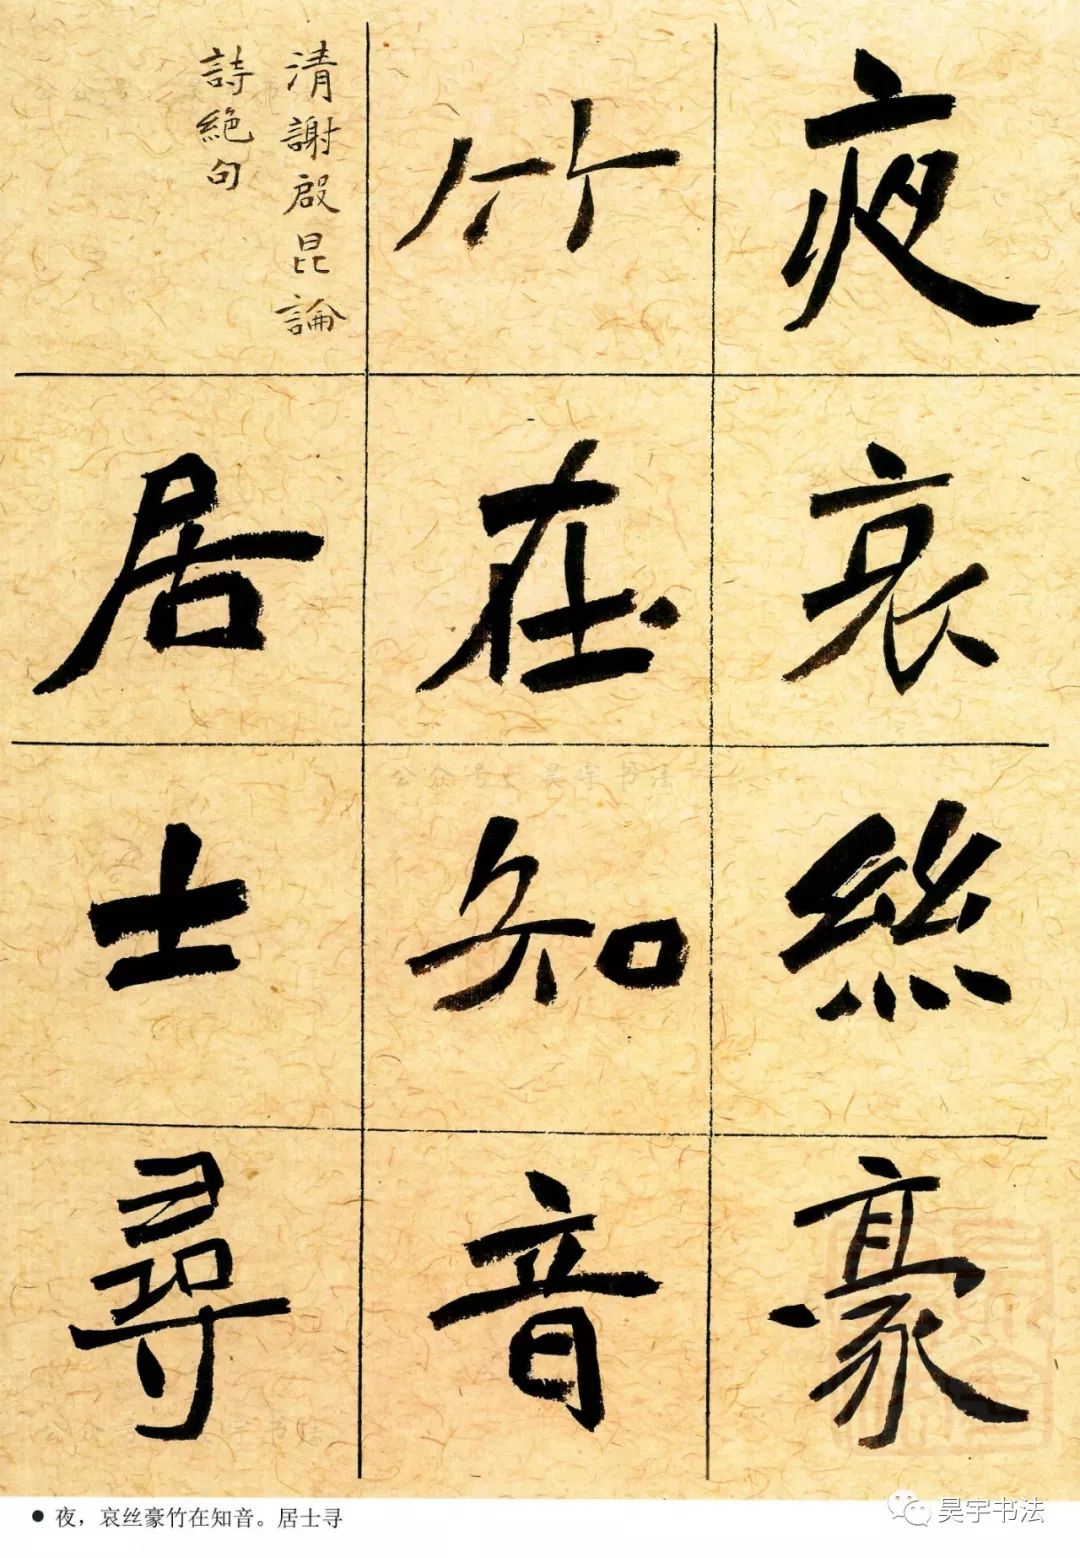 夜哀絲豪
竹在知音
居士尋
清謝啟昆論
詩絕句
公众号：昊宇书法
夜，哀丝豪竹在知音。居士寻
昊宇书法